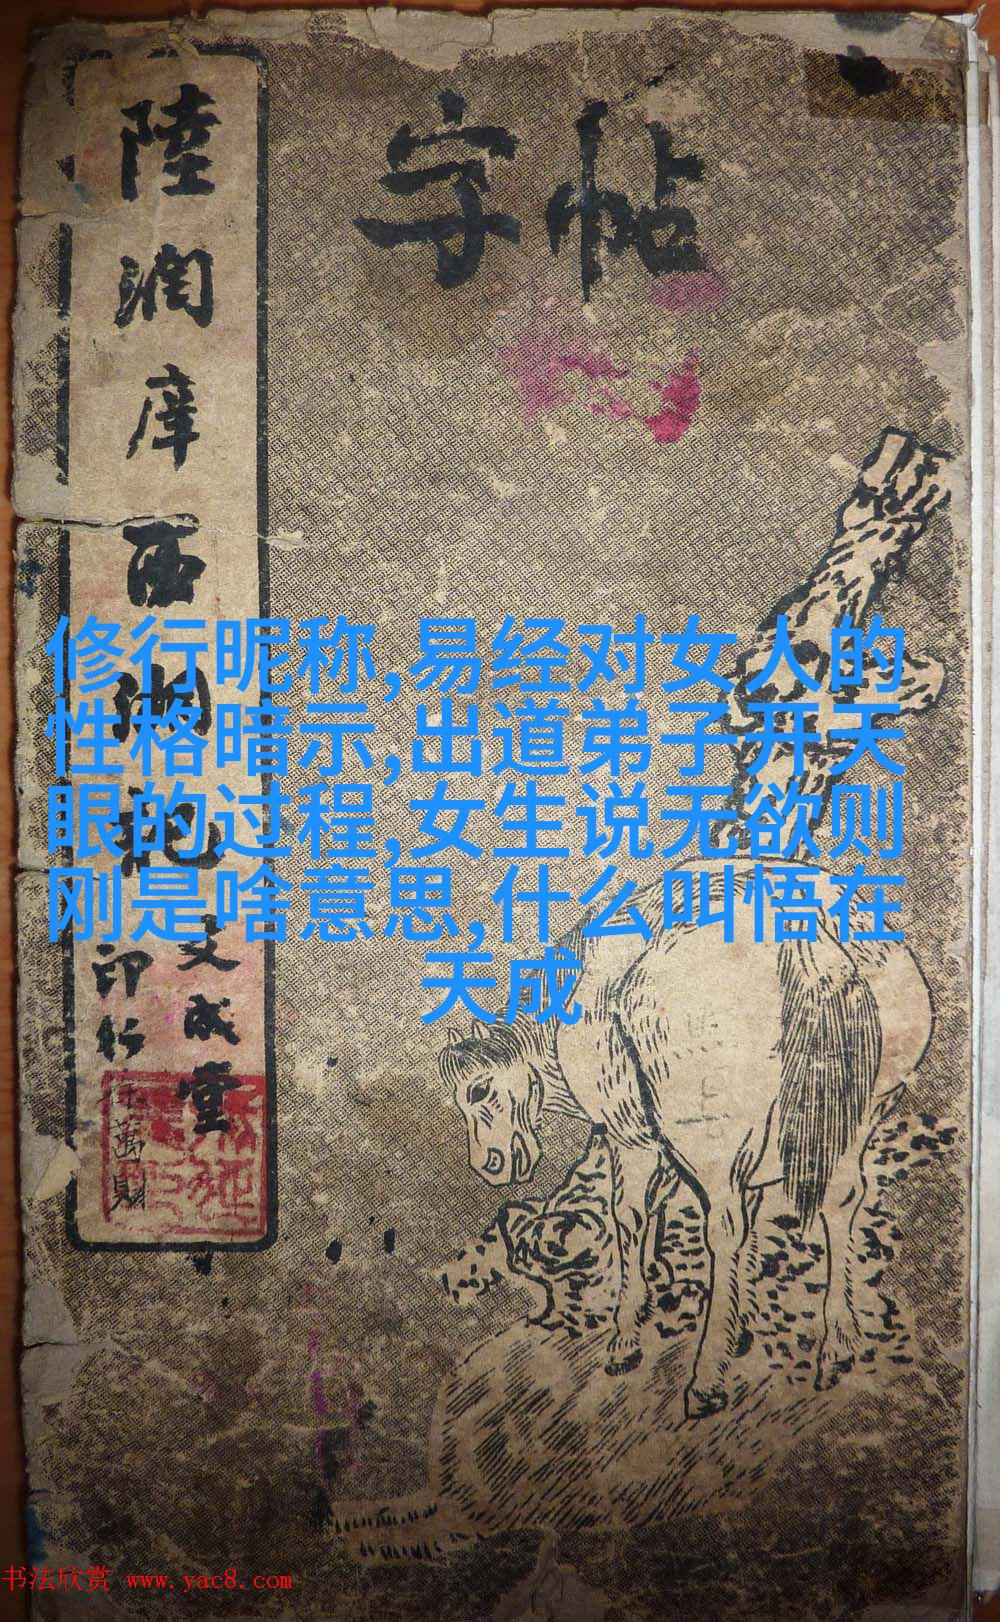 字帖
陸潤庠西湖記
文成堂
印行
萬財
修行昵称,易经对女人的
性格暗示,出道弟子开天
眼的过程,女生说无欲则
刚是啥意思,什么叫悟在
天成
书法欣赏 www.yac8.com